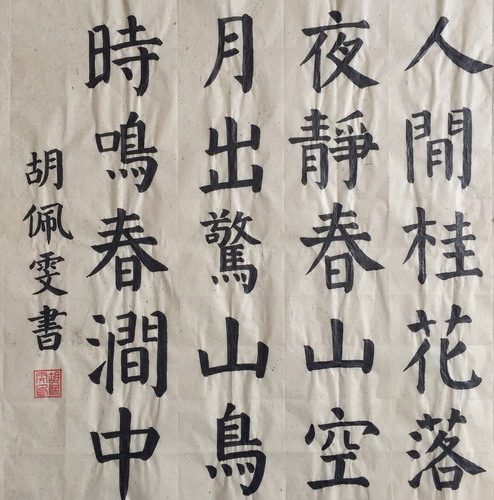 人間桂花落
夜靜春山空
月出驚山鳥
時鳴春澗中
胡佩雯書